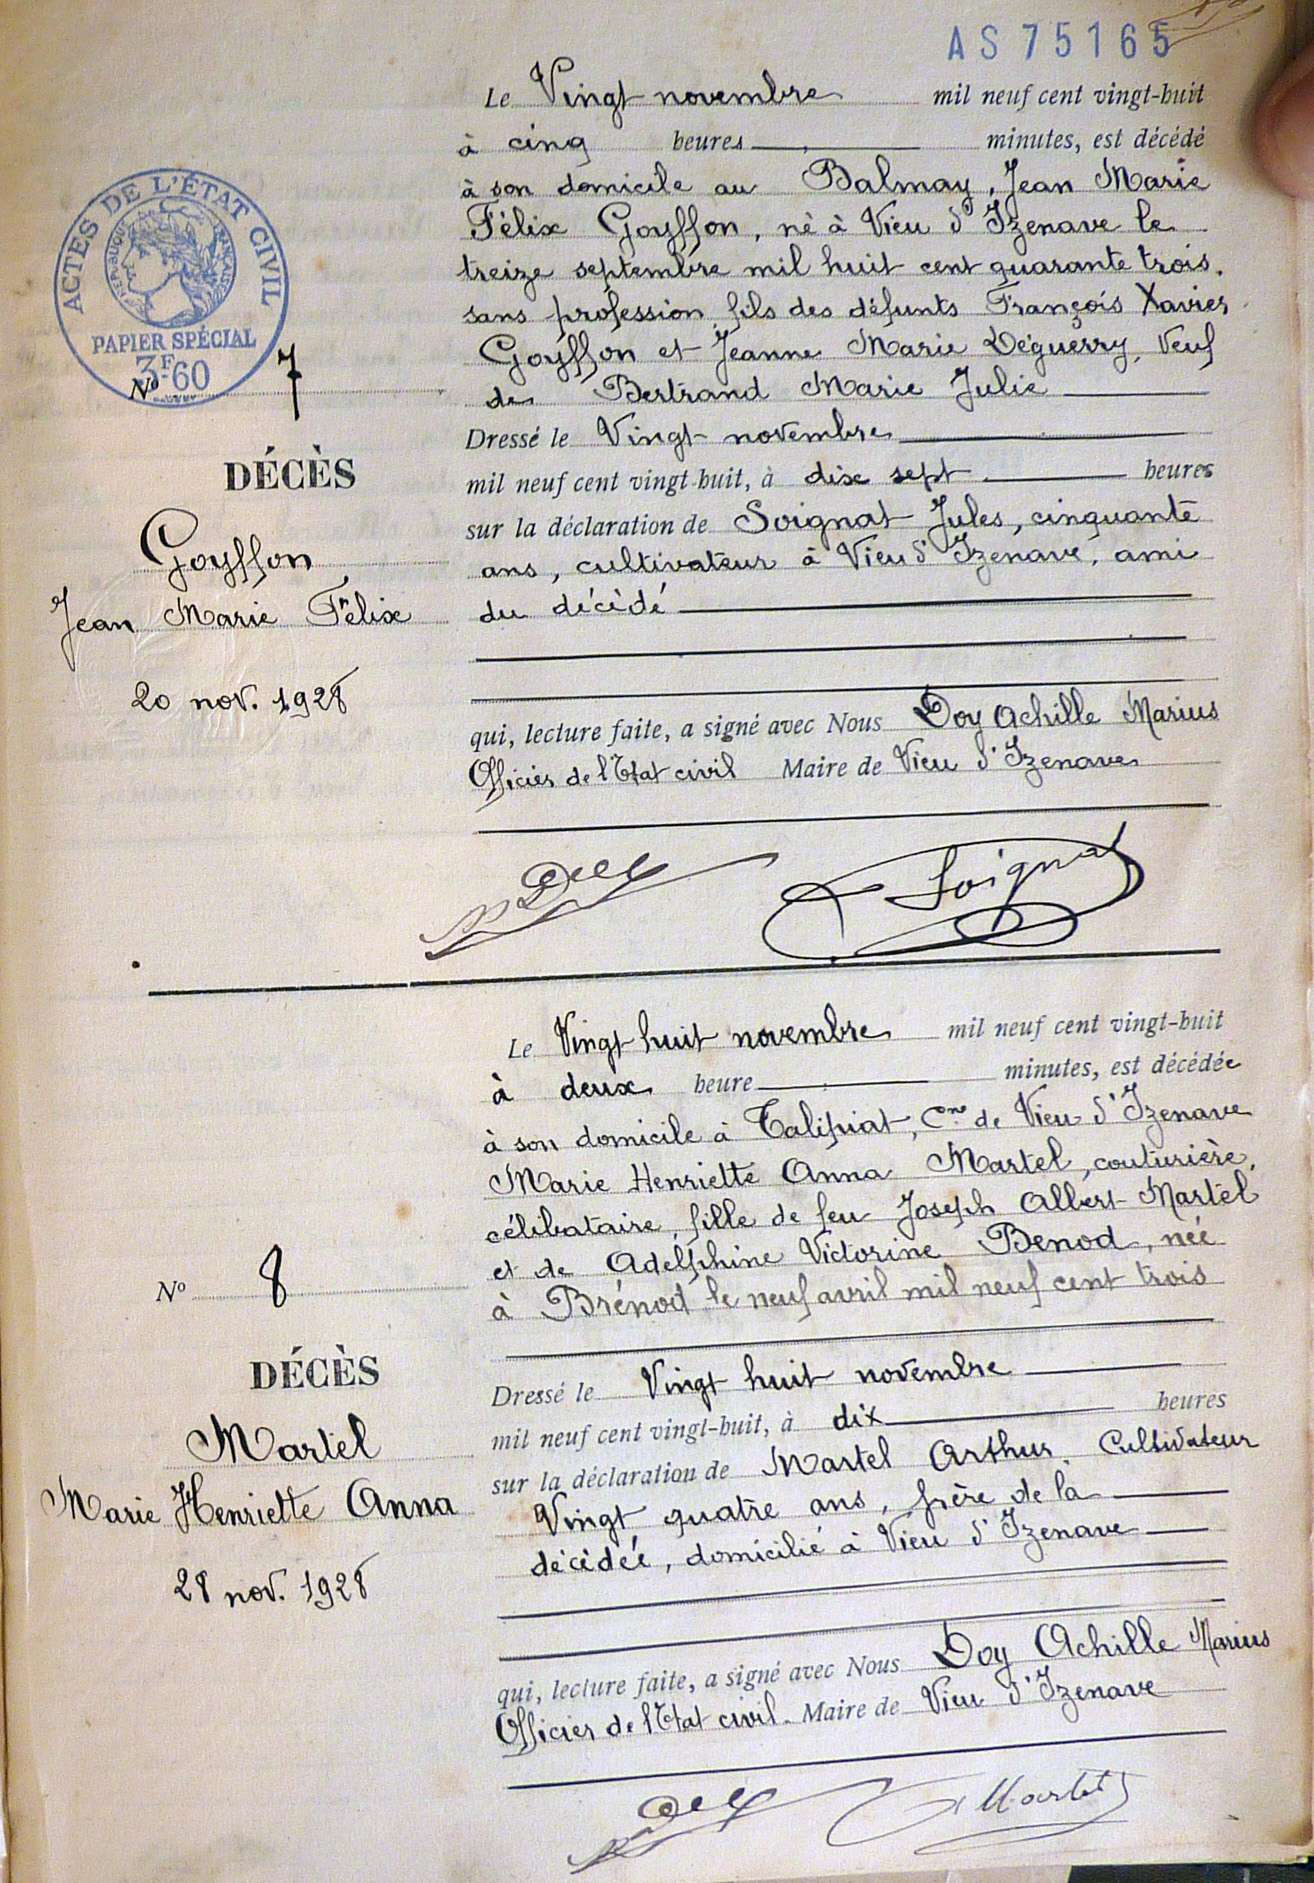 AS 75165
Le Vingt novembre mil neuf cent vingt-huit
à cinq heures minutes, est décédé
à son domicile au Balmay, Jean Marie
Félix Goyffon, né à Vieu d'Izenave le
treize septembre mil huit cent quarante trois.
sans profession, fils des défunts François Xavier
Goyffon et Jeanne Marie Déguerry, Veuf
de Bertrand Marie Julie
Dressé le Vingt novembre
mil neuf cent vingt-huit, à dix sept heures
sur la déclaration de Soignat Jules, cinquante
ans, cultivateur à Vieu d'Izenave, ami
du décédé
qui, lecture faite, a signé avec Nous Doy Achille Marius
Officier de l'Etat civil Maire de Vieu d'Izenave
Soignat
ACTES DE L'ÉTAT CIVIL
RÉPUBLIQUE FRANÇAISE
PAPIER SPÉCIAL
3F.60
No 7
DÉCÈS
Goyffon
Jean Marie Félix
20 nov. 1928
Le Vingt huit novembre mil neuf cent vingt-huit
à deux heure minutes, est décédée
à son domicile à Talipiat, Cne de Vieu d'Izenave
Marie Henriette Anna Martel, couturière,
célibataire, fille de feu Joseph Albert Martel
et de Adelphine Victorine Benod, née
à Brénod le neuf avril mil neuf cent trois
Dressé le Vingt huit novembre
mil neuf cent vingt-huit, à dix heures
sur la déclaration de Martel Arthur, Cultivateur
Vingt quatre ans, frère de la
décédée, domicilié à Vieu d'Izenave
qui, lecture faite, a signé avec Nous Doy Achille Marius
Officier de l'Etat civil. Maire de Vieu d'Izenave
Martel
No 8
DÉCÈS
Martel
Marie Henriette Anna
28 nov. 1928